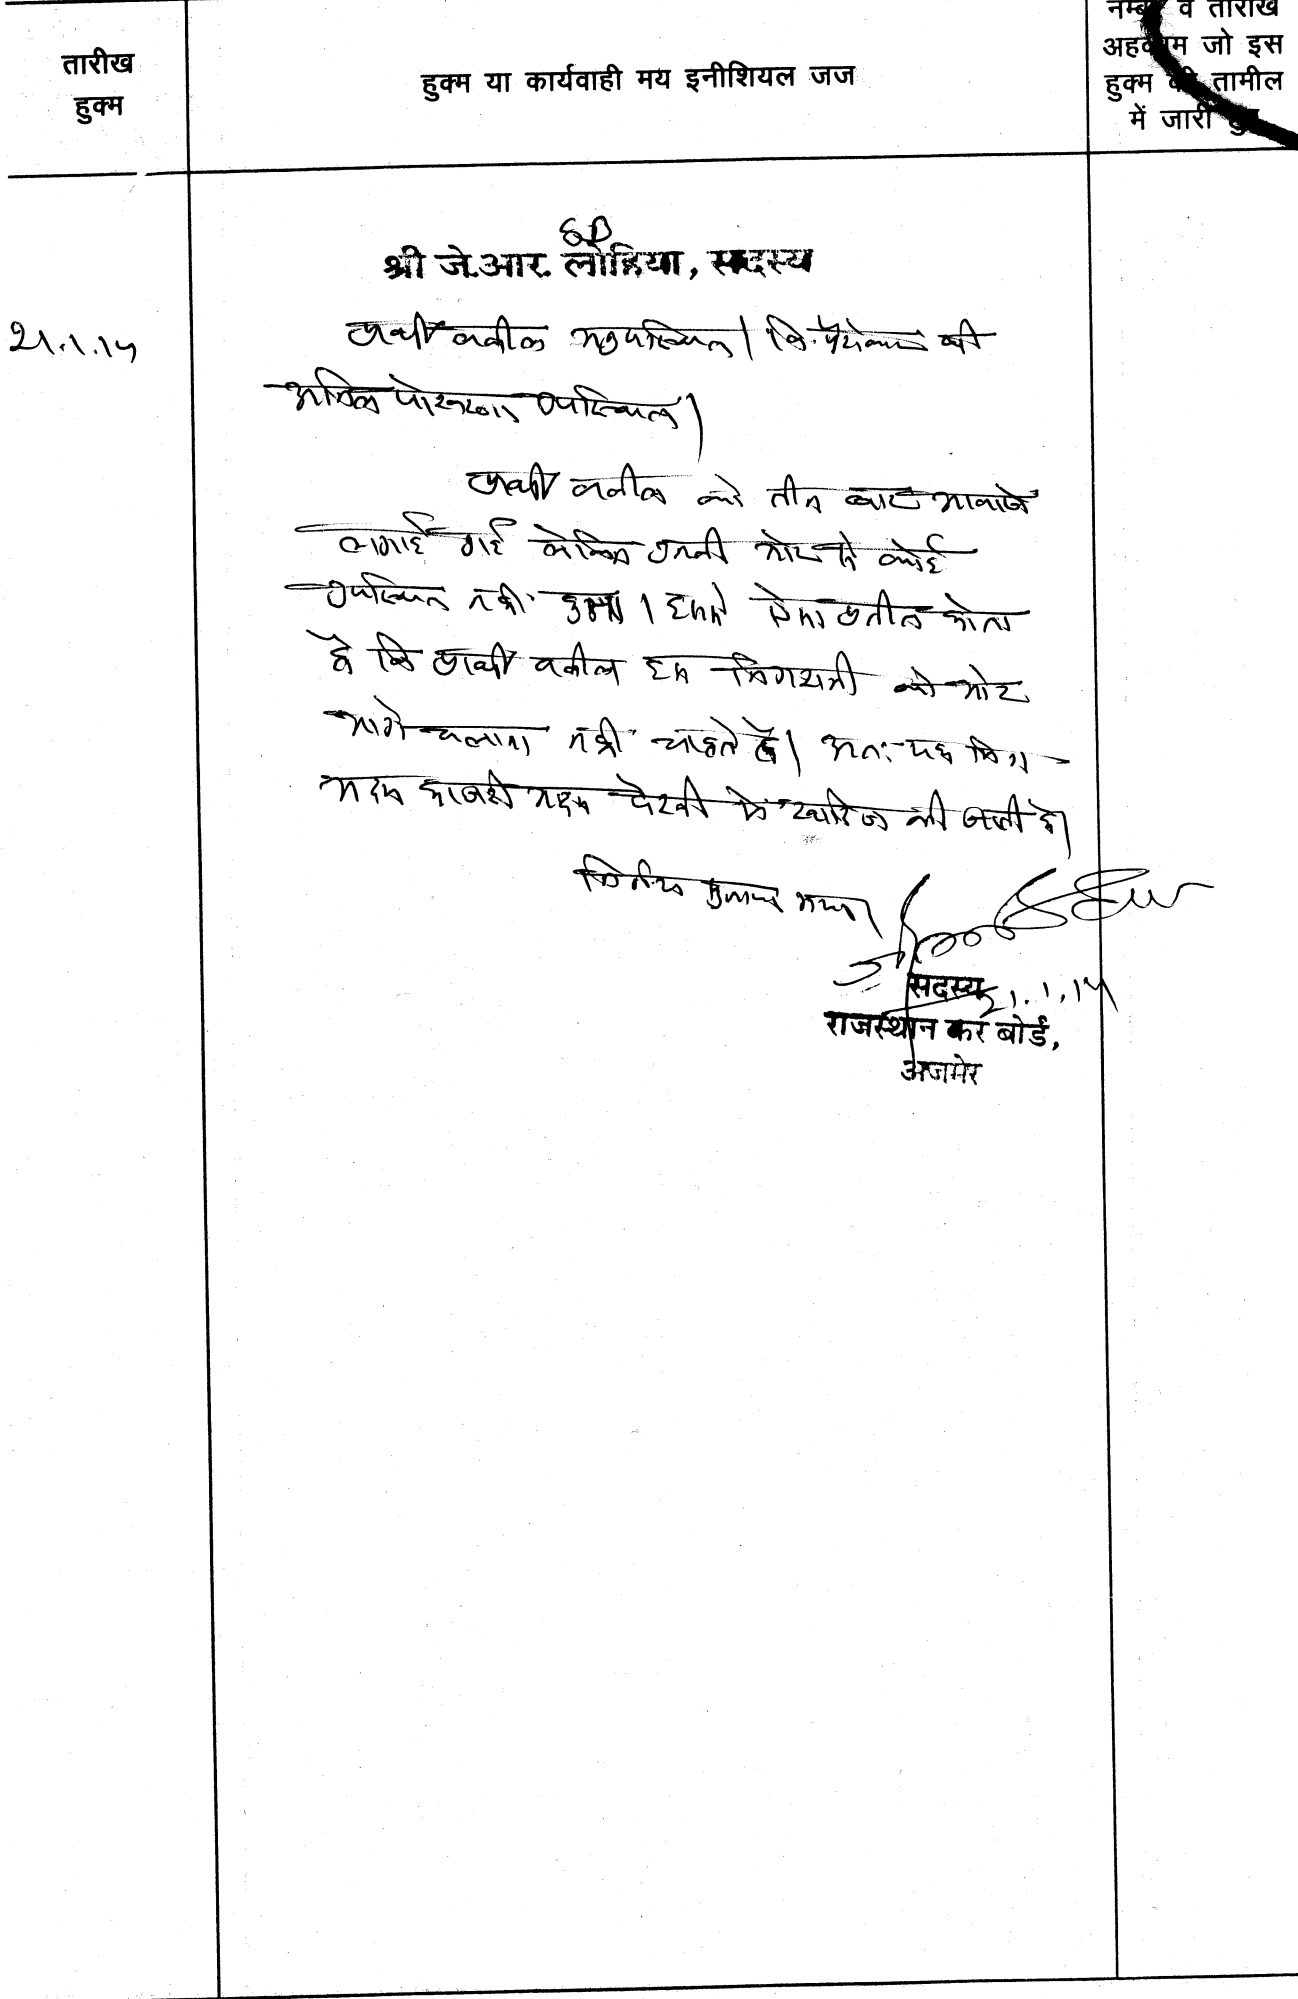 नम्बर व तारीख
तारीख
अहकाम जो इस
हुक्म या कार्यवाही मय इनीशियल जज
हुक्म की तामील
हुक्म
में जारी हुए
SD
श्री जे.आर. लोहिया, सदस्य
21.1.15
प्रार्थी वकील अनुपस्थित। वि. पैरोकार श्री
अनिल पोखरणा उपस्थित।
प्रार्थी वकील को तीन बार आवाजें
लगाई गई लेकिन उनकी ओर से कोई
उपस्थित नहीं हुआ। इससे ऐसा प्रतीत होता
है कि प्रार्थी वकील इस निगरानी को और
आगे चलाना नहीं चाहते हैं। अतः यह निग.
अदम हाजरी अदम पैरवी में खारिज की जाती है।
निर्णय सुनाया गया।
सदस्य 21.1.15
राजस्थान कर बोर्ड,
अजमेर